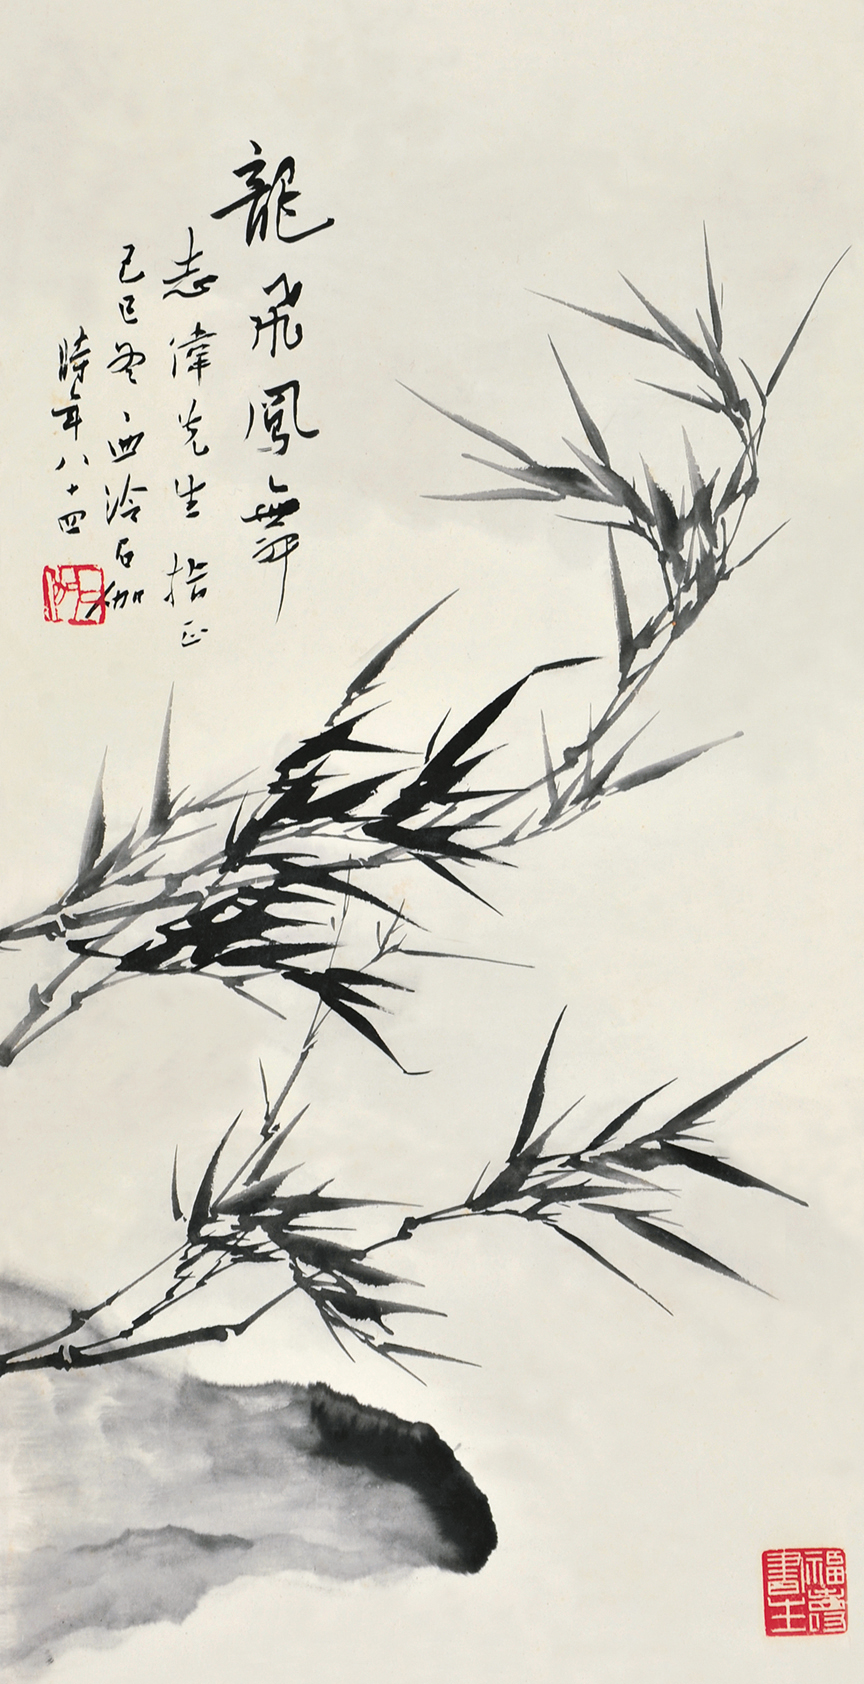 龍飛鳳舞
志偉先生指正
己巳冬、西泠石伽
時年八十四
福壽書生